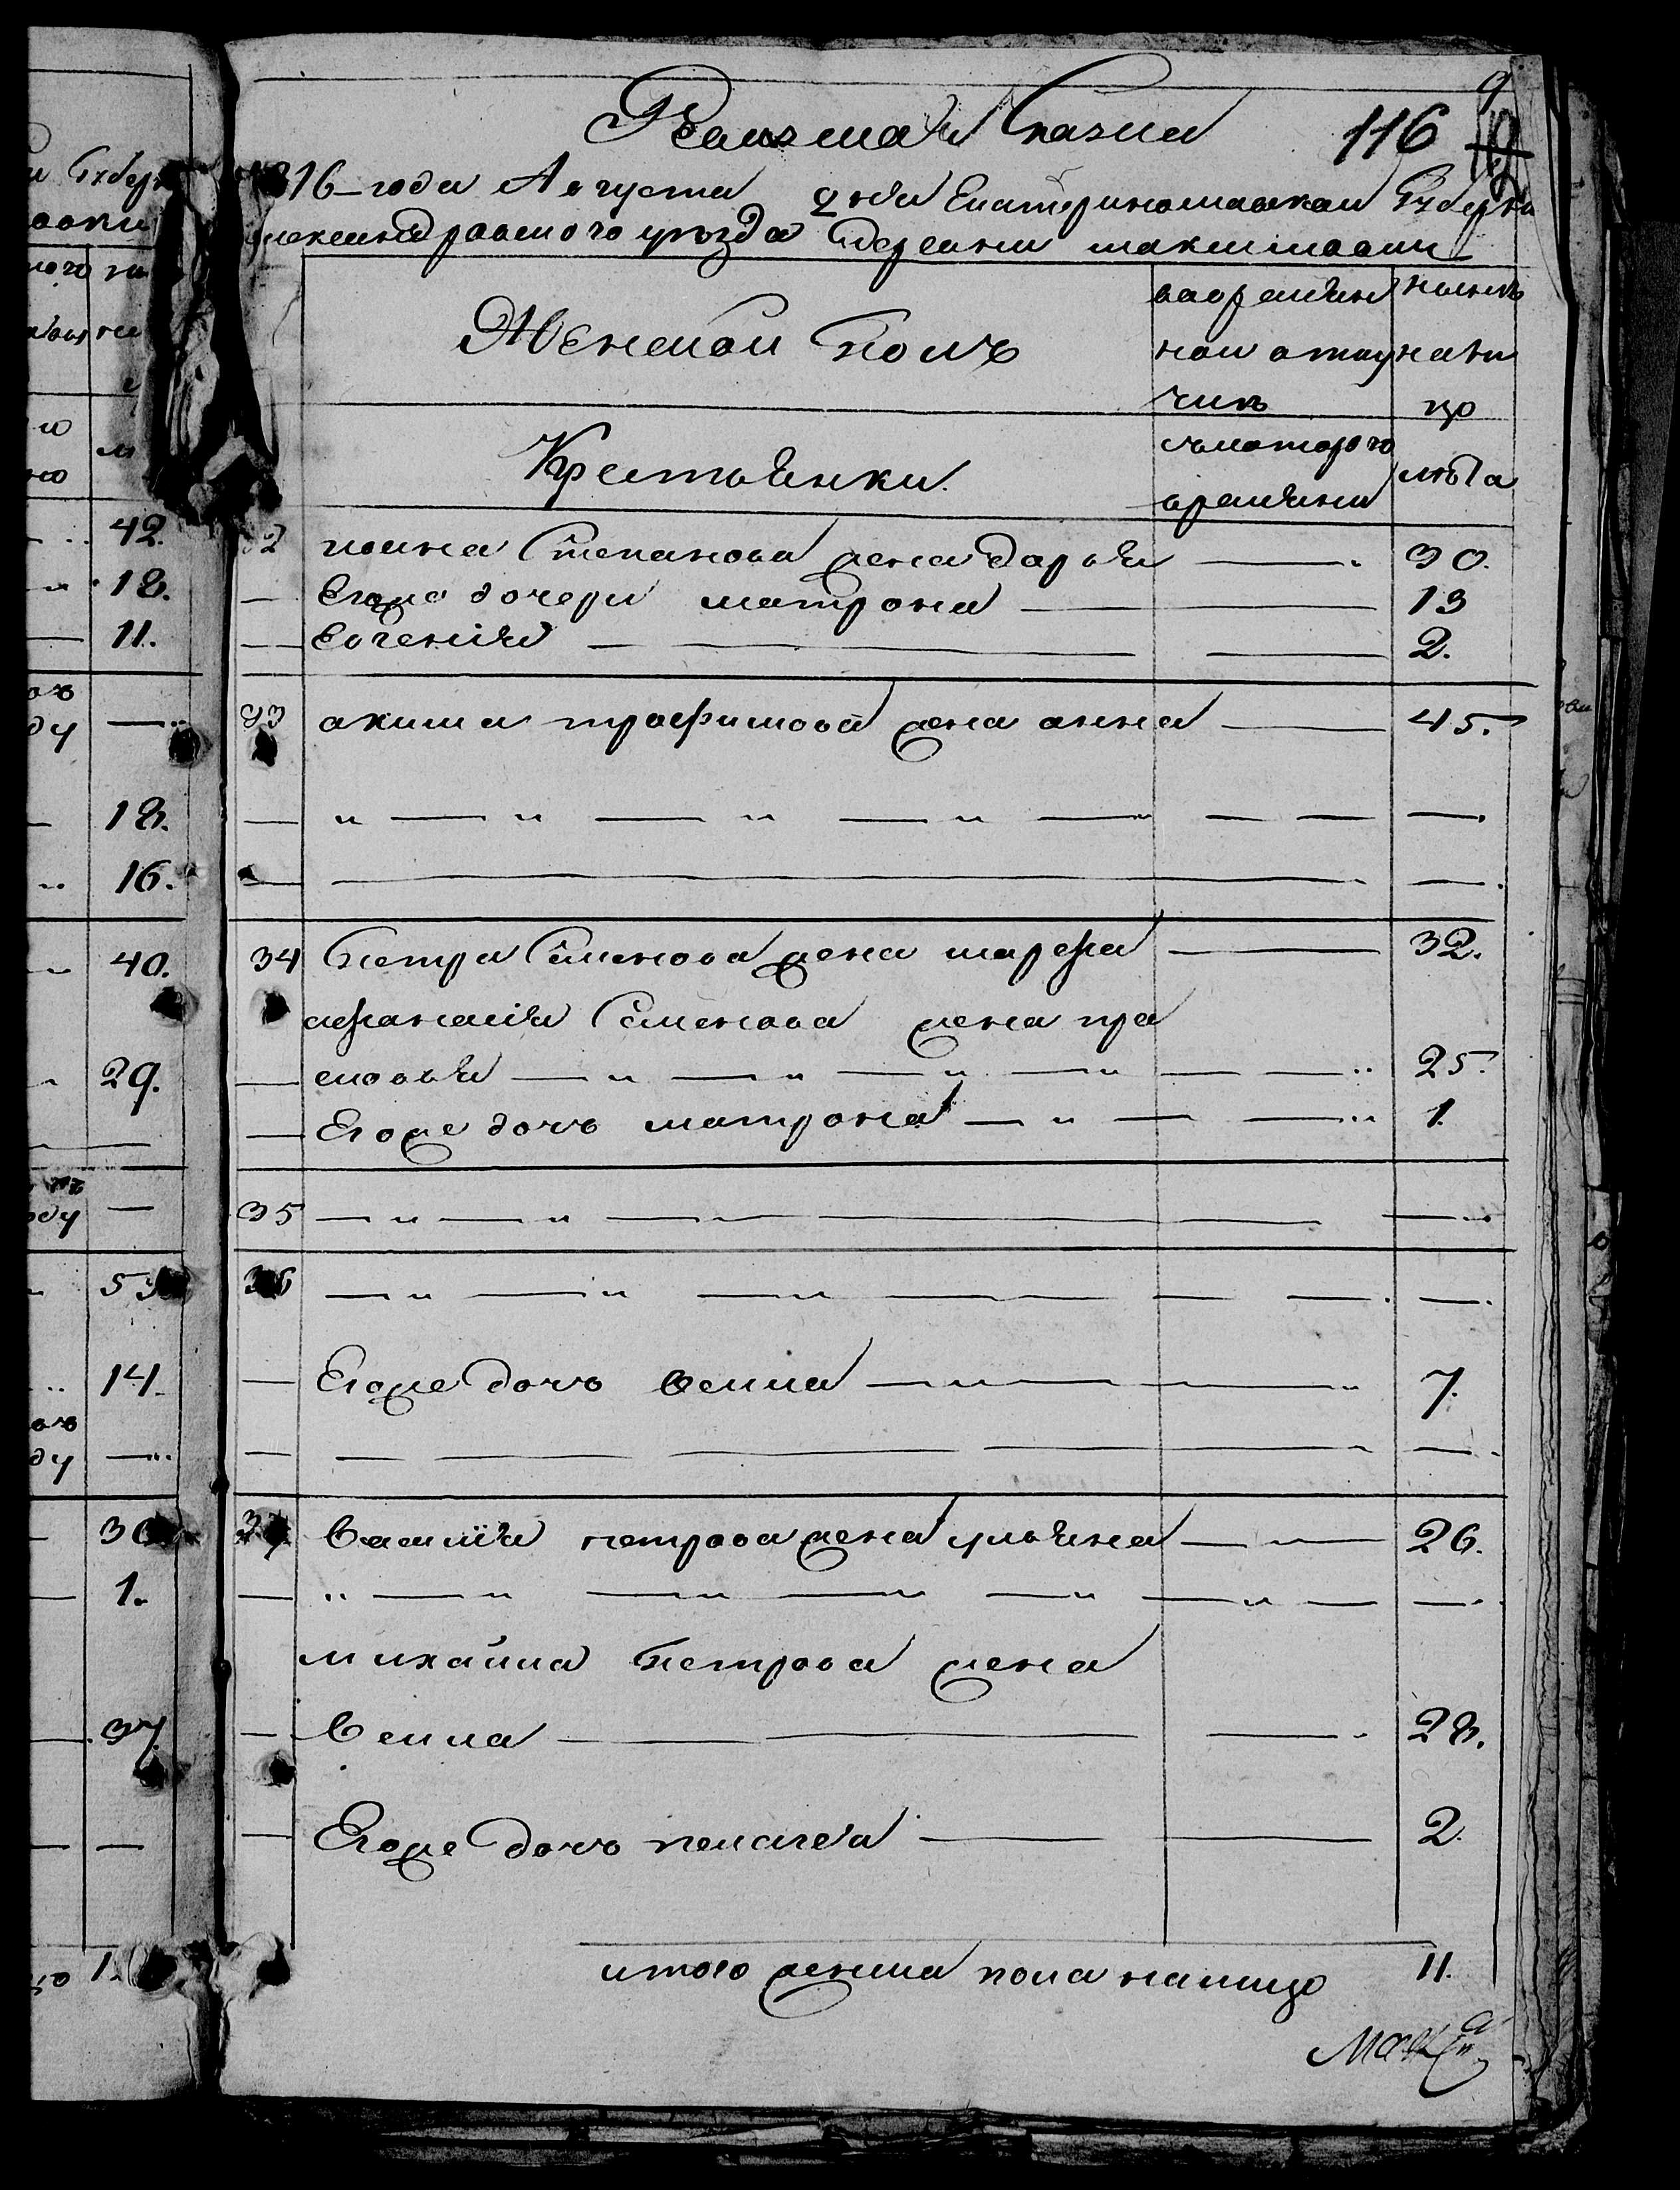 Ревизская Сказка 116 9
1816 года Августа 2 дня Екатеринославской Губерни
александравского уезда деревни максимовки
Женской полъ
вовремян
ной отлу
чкѣ
нынѣ
нали
цо
Крестьянки
съкоторого
времяни
лѣта
32 иоина Степанова жена дарья — 30.
— Егоже дочери матрона — 13
— Евгения — 2.
33 акима трафимова жена анна — 45.
34 Петра Семенова жена марфа — 32.
афанасия Семенова жена пра
— сковья — 25.
— Егоже дочь матрона — 1.
35 —
36 —
— Егоже дочь векла — 7.
37 василия петрова жена ульяна — 26.
михайла Петрова жена
— векла — 28.
— Егоже дочь пелагея — 2.
итого женска пола налицо 11.
42.
18.
11.
18.
16.
40.
29.
53
14.
30
1.
37.